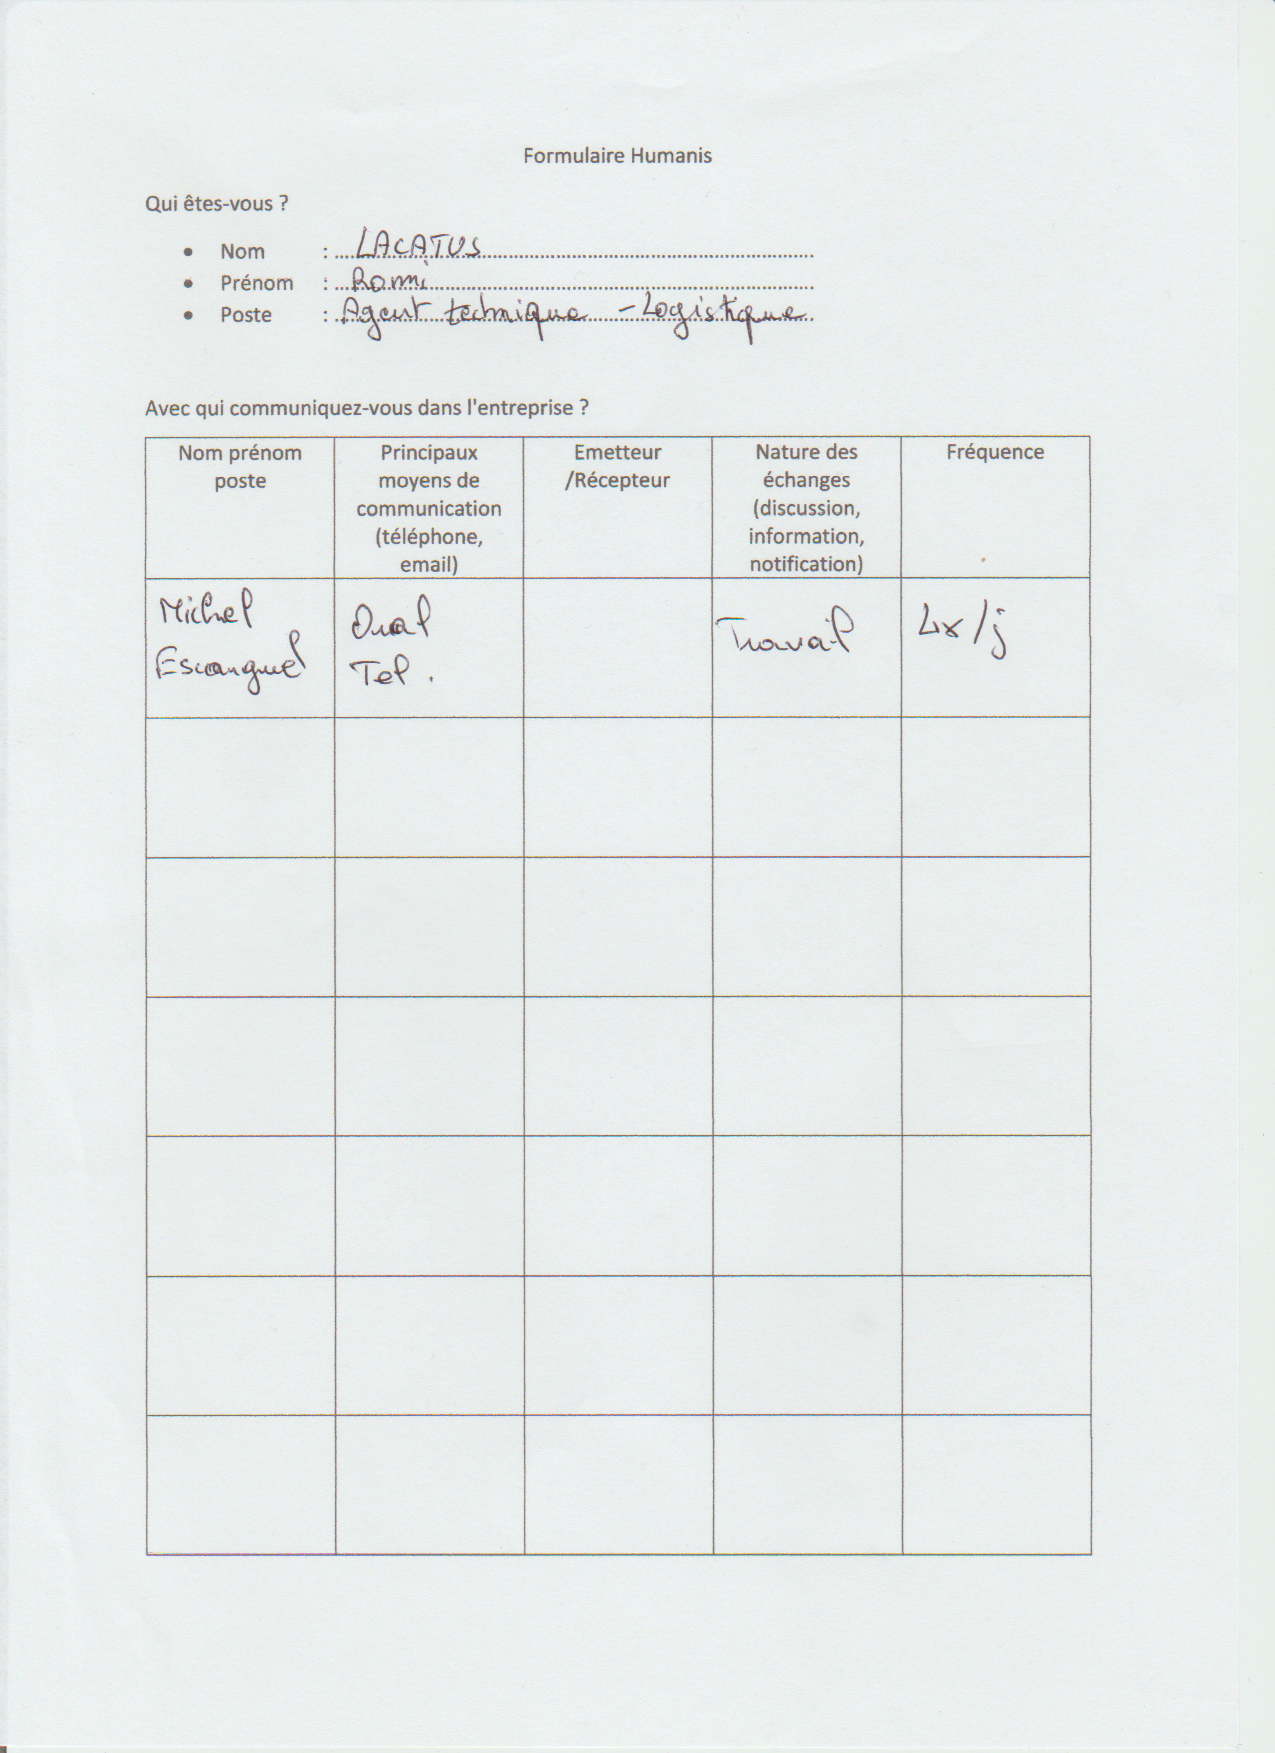 Formulaire Humanis
Qui êtes-vous ?
• Nom : LACATUS
• Prénom : Romi
• Poste : Agent technique - Logistique
Avec qui communiquez-vous dans l'entreprise ?
Nom prénom
poste
Principaux
moyens de
communication
(téléphone,
email)
Emetteur
/Récepteur
Nature des
échanges
(discussion,
information,
notification)
Fréquence
Michel
Escanguel
Oral
Tel.
Travail
4x/j